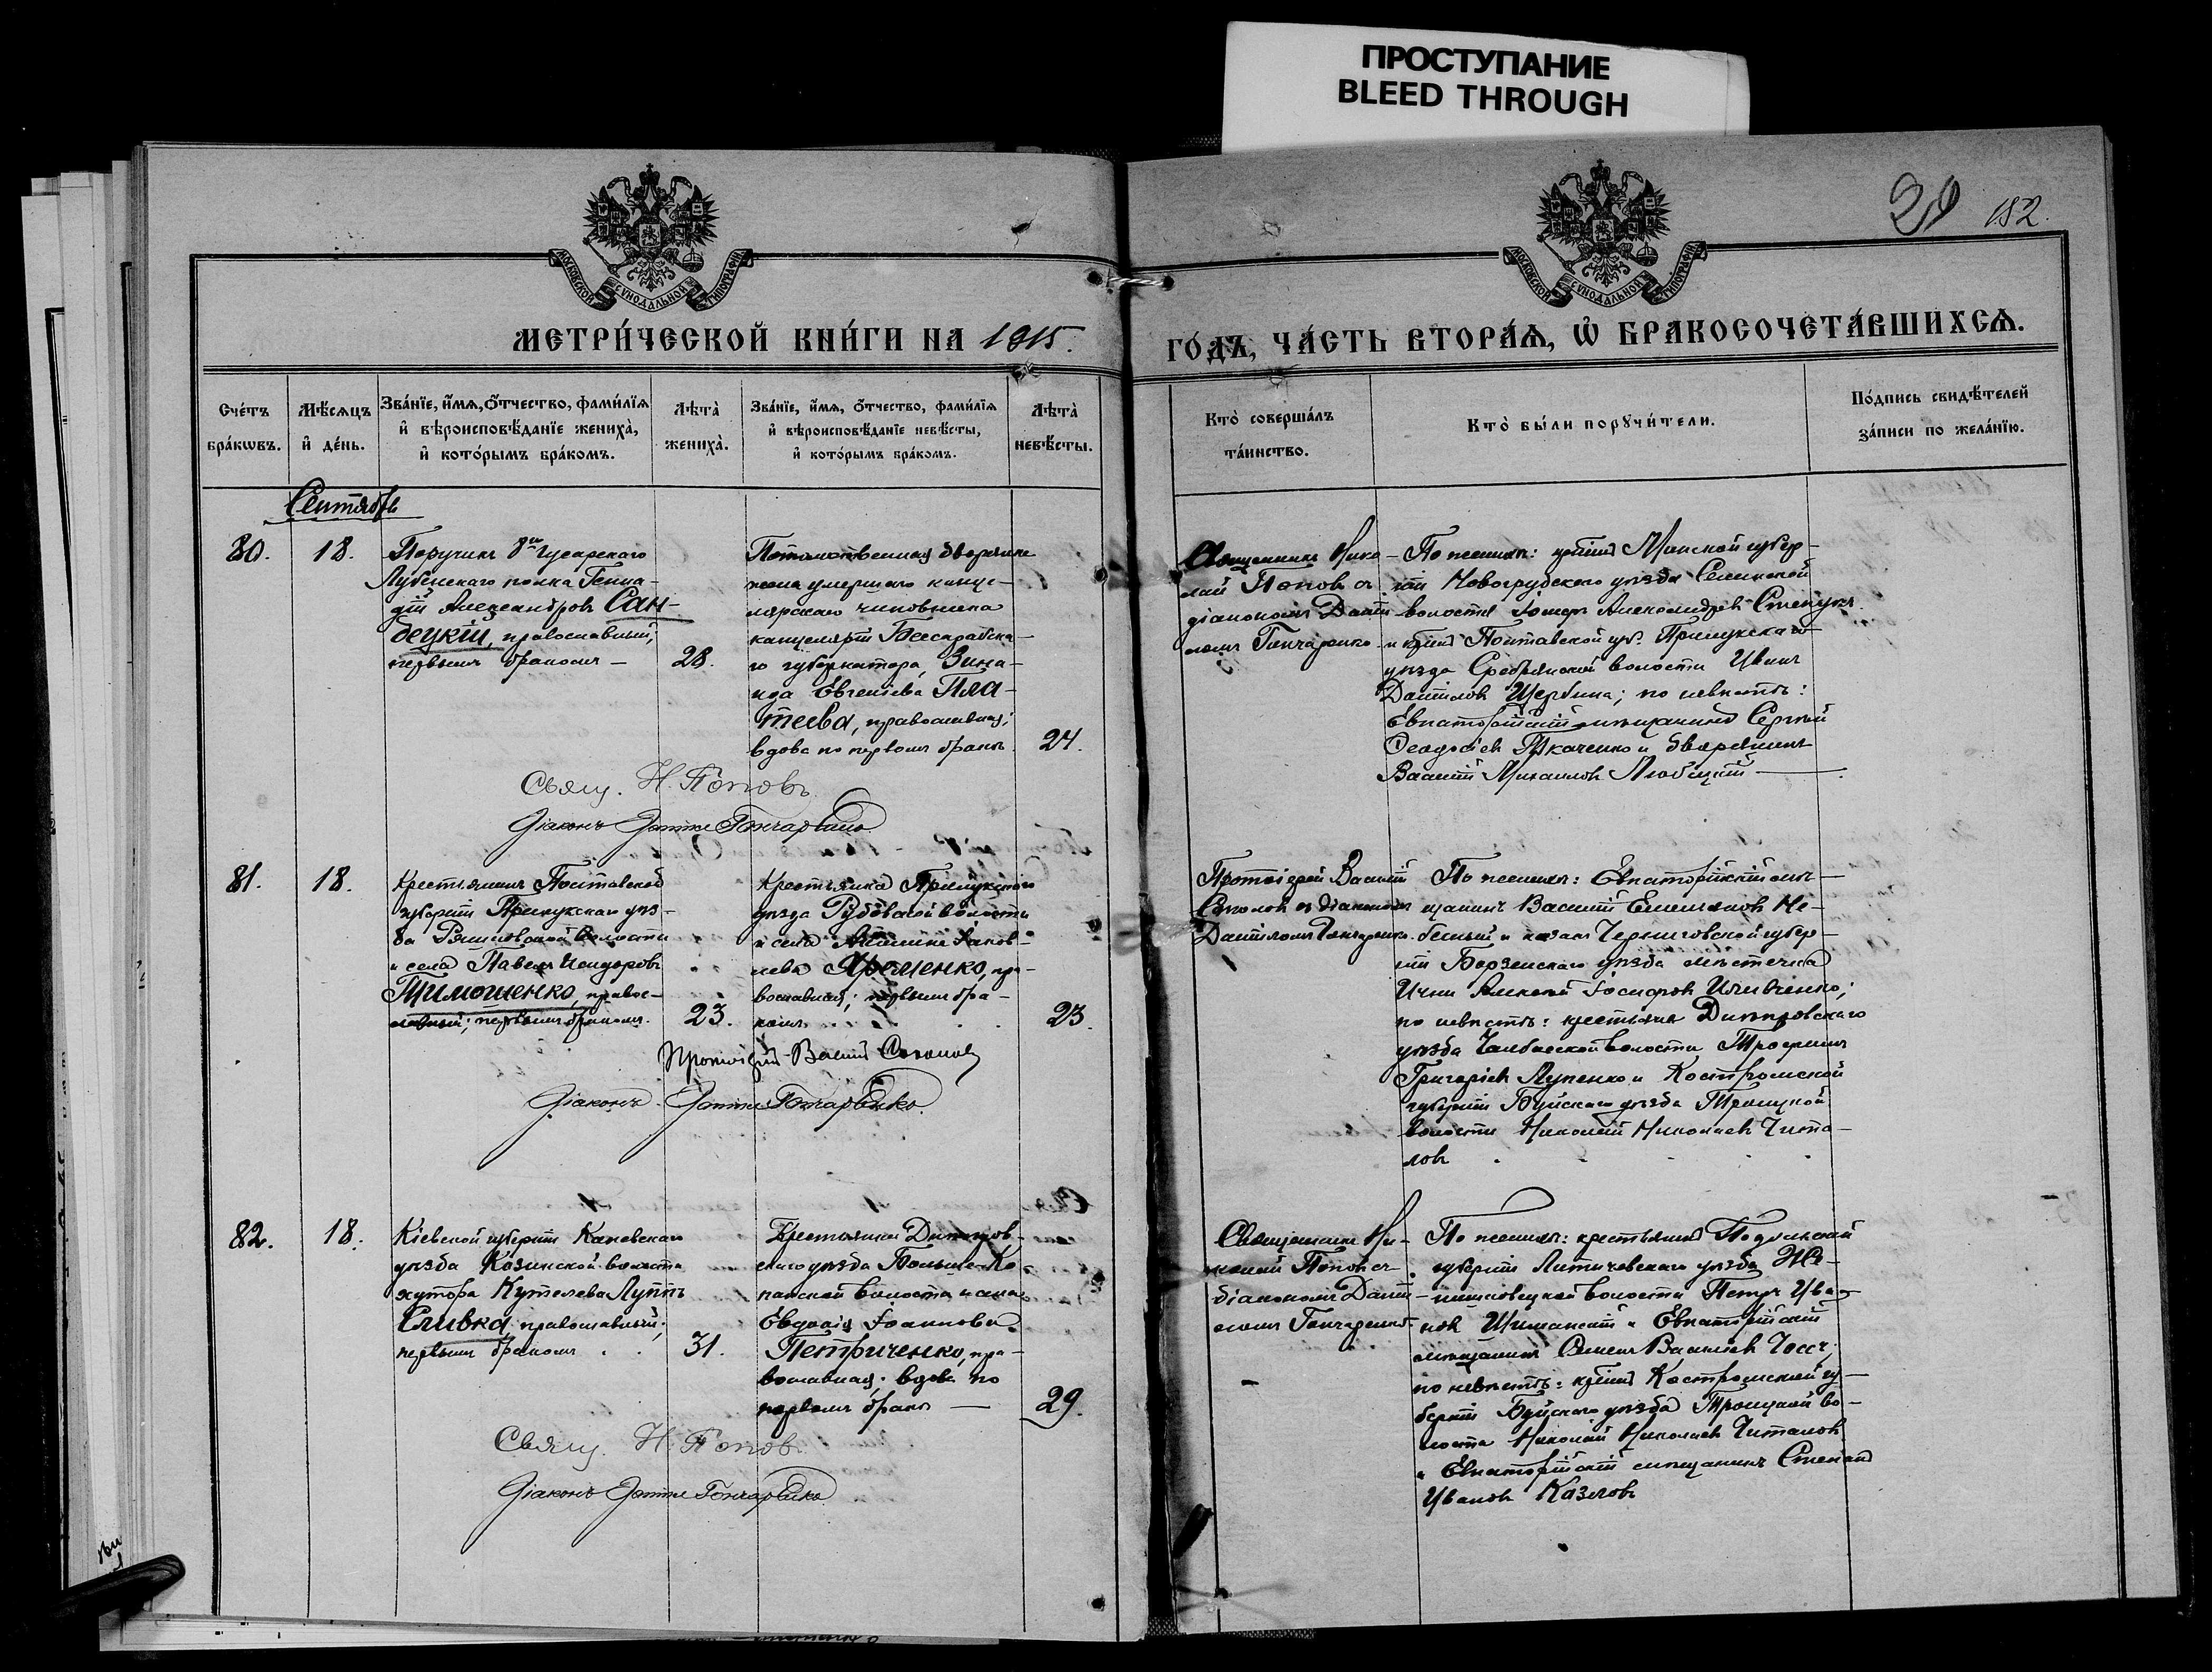 ПРОСТУПАНИЕ
BLEED THROUGH
29 182.
МОСКОВСКОЙ СѴНОДАЛЬНОЙ ТИПОГРАФІИ
МОСКОВСКОЙ СѴНОДАЛЬНОЙ ТИПОГРАФІИ
МЕТРИ́ЧЕСКОЙ КНИ́ГИ НА 1915.
ГО́ДЪ, ЧА́СТЬ ВТОРА́Ѧ, Ѽ БРАКОСОЧЕТА́ВШИХСѦ.
Сче́тъ
бра́кѡвъ.
Мѣ́сѧцъ
и҆ де́нь.
Зва́нїе, и҆́мѧ, ѻ҆́тчество, фами́лїѧ
и҆ вѣроисповѣ́данїе жениха̀,
и҆ кото́рымъ бра́комъ.
Лѣта̀
жениха̀.
Зва́нїе, и҆́мѧ, ѻ҆́тчество, фами́лїѧ
и҆ вѣроисповѣ́данїе невѣ́сты,
и҆ кото́рымъ бра́комъ.
Лѣта̀
невѣ́сты.
Кто̀ соверша́лъ
та́инство.
Кто̀ бы́ли порꙋчи́тели.
По́дпись свидѣ́телей
за́писи по жела́нїю.
Сентябрь
80.
18.
Поручикъ 8го гусарскаго
Лубенскаго полка Генна-
дій Александровъ Сан-
бецкій, православный;
первымъ бракомъ —
28.
Потомственная дворянка
жена умершаго канце-
лярскаго чиновника
канцеляріи Бессарабска-
го губернатора, Зина-
ида Евгеніева Пла-
теева, православная;
вдова по первомъ бракѣ
24.
Священникъ Нико-
лай Поповъ съ
діакономъ Даніи-
ломъ Гончаренко
По женихѣ: кр-нинъ Минской губер-
ніи Новогрудского уѣзда
волости Іосифъ Александровъ
и кр-нинъ Полтавской губ. Прилукскаго
уѣзда Сребнянской волости Иванъ
Даніиловъ Щербина; по невѣстѣ:
Евпаторійскій мѣщанинъ Сергѣй
Ѳеодосіевъ Ткаченко и дворянинъ
Василій Михаиловъ Любицкій
Свящ. Н. Поповъ
Діаконъ Даніилъ Гончаренко
81.
18.
Крестьянинъ Полтавской
губерніи Прилукскаго уѣз-
да волости
и села Павелъ Исидоровъ
Тимошенко, правос-
лавный; первымъ бракомъ.
23.
Крестьянка Прилукскаго
уѣзда Рудовской волости
и села Іаков-
лева Яременко, пра-
вославная; первымъ бра-
комъ
23.
Протоіерей Василій
Соколовъ съ діакономъ
Даніиломъ Гончаренко.
По женихѣ: Евпаторійскій мѣ-
щанинъ Василій Емельяновъ Не-
бесный и казакъ Черниговской губер-
ніи Борзенскаго уѣзда мѣстечка
Ични Алексѣй Іосифовъ Ильченко;
по невѣстѣ: крестьяне Днѣпровскаго
уѣзда Чалбасской волости Трофимъ
Григоріевъ Лупенко и Костромской
губерніи Буйскаго уѣзда Троицкой
волости Николай Николаевъ Чита-
ловъ
Протоіерей Василій Соколовъ
Діаконъ Даніилъ Гончаренко.
82.
18.
Кіевской губерніи Каневскаго
уѣзда Козинской волости
хутора Кутелева Луппъ
Сливка, православный;
первымъ бракомъ
31.
Крестьянка Днѣпров-
скаго уѣзда Больше-Ко-
панской волости и села
Евдокія Іоаннова
Петриченко, пра-
вославная; вдова по
первомъ бракѣ —
29.
Священникъ Ни-
колай Поповъ съ
діакономъ Даніи-
ломъ Гончаренко
По женихѣ: крестьянинъ Подольской
губерніи Литичевскаго уѣзда Же-
волости Петръ Ива-
новъ Шиманскій и Евпаторійскій
мѣщанинъ Семенъ Васильевъ
по невѣстѣ: кр-нинъ Костромской гу-
берніи Буйскаго уѣзда Троицкой во-
лости Николай Николаевъ Читаловъ
и Евпаторійскій мѣщанинъ Стефанъ
Ивановъ Казловъ
Свящ. Н. Поповъ
Діаконъ Даніилъ Гончаренко